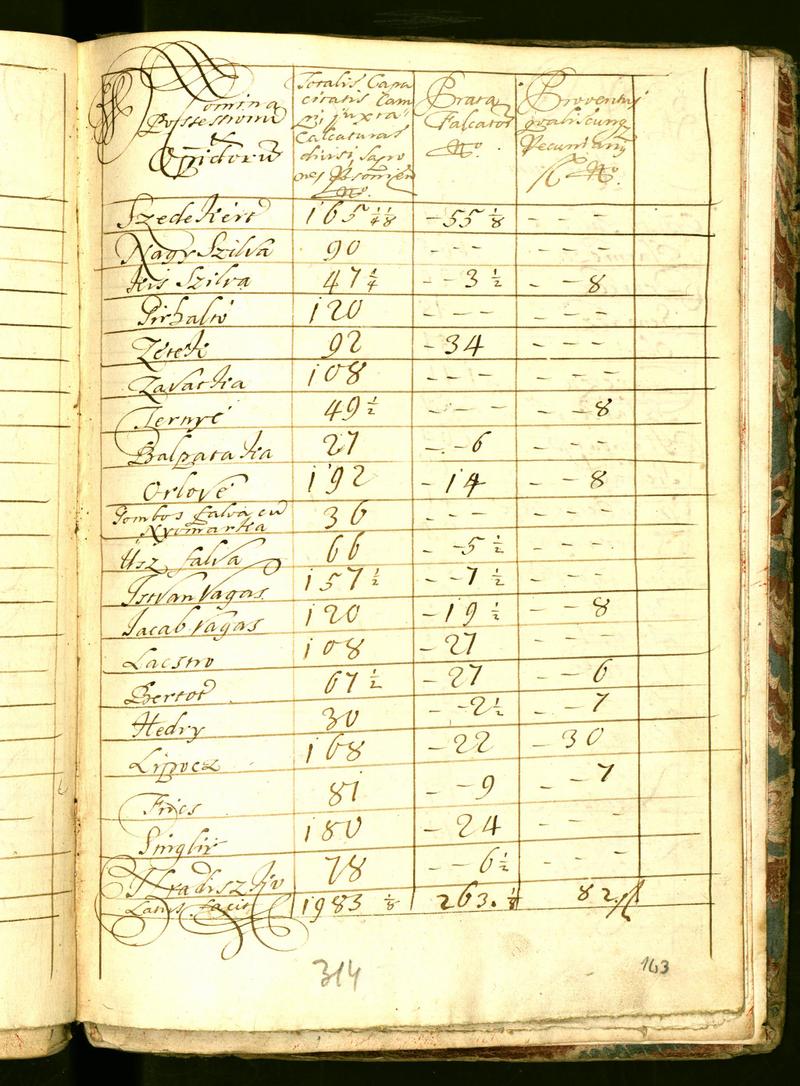 Nomina
Possessionu
&
Opidorũ
Totalis Capa
citatis Cam
pi juxta
Calcaturas
No.
Prata
Falcator
No.
Proventus
qvaliscunq
Pecuniari
fl No.
Szedekért 165 1/4 1/8 - 55 1/8 - - -
Nagy Szilva 90 - - -  - - -
Kis Szilva 47 1/4 - - 3 1/2 - - 8
Pirhaló 120 - - -
Zétek 92 - 34 - - -
Zavatka 108 - - -  - - -
Ternyé 49 1/2 - - -  - - 8
Balpataka 27 - - 6 - - -
Orlové 192 - 14 - - 8
Gombos falva cũ
Kyomarka 36 - - -  - - -
Usz falva 66 - - 5 1/2 - - -
Istvan Vagas 157 1/2 - - 7 1/2 - - -
Jacab Vagas 120 - 19 1/2 - - 8
Lacsno 108 - 27 - - -
Bertot 67 1/2 - 27 - - 6
Hedry 30 - - 2 1/2 - - 7
Lipocz 168 - 22 - 30
Frics 81 - - 9 - - 7
Singlir 180 - 24 - - -
Hradiszko 78 - - 6 1/2 - - -
Latus facit 1983 1/8 263. 1/8 82
314 163